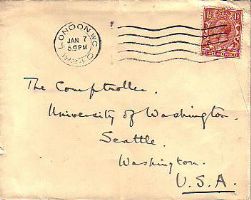 LONDON. W.C.
JAN 7
The Comptroller.
University of Washington.
Seattle.
Washington.
U.S.A.